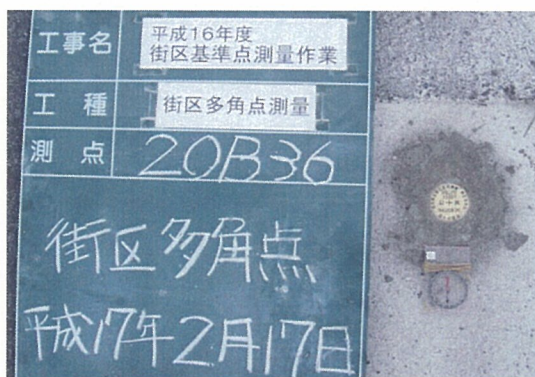 工事名
平成16年度
街区基準点測量作業
工種
街区多角点測量
測点
20B36
街区多角点
平成17年2月17日